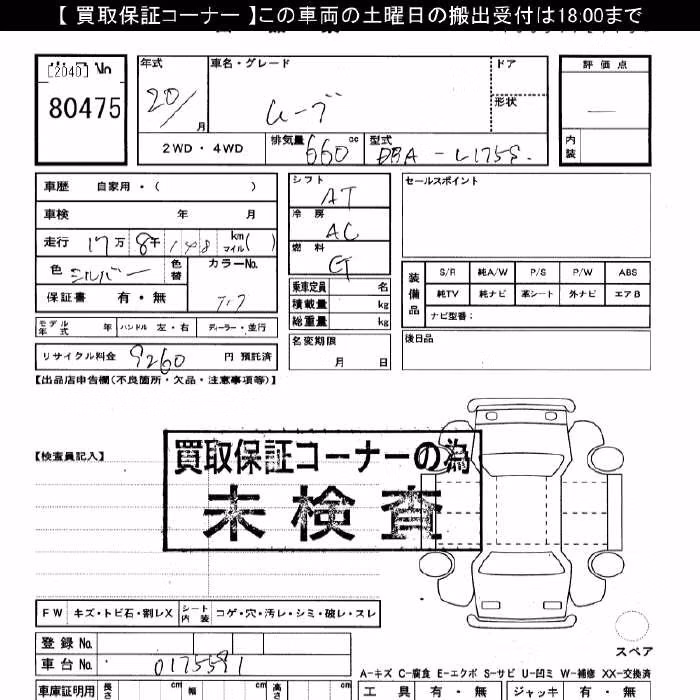 【 買取保証コーナー 】この車両の土曜日の搬出受付は18:00まで
[2040] No
80475
年式
20/
月
車名・グレード
ムーブ
ドア
形状
評価点
内装
2WD・4WD
排気量 660 cc
型式 DBA-L175S.
車歴 自家用・( )
車検 年 月
走行 17万 8千 148 km マイル( )
色 シルバー 色替
カラーNo.
保証書 有・無
モデル年式 年 ハンドル 左・右 ディーラー・並行
リサイクル料金 9260 円 預託済
シフト AT
冷房 AC
燃料
乗車定員 名
積載量 kg
総重量 kg
名変期限
月 日
セールスポイント
装備品
S/R 純A/W P/S P/W ABS
純TV 純ナビ 革シート 外ナビ エアB
ナビ型番:
後日品
【出品店申告欄(不良箇所・欠品・注意事項等)】
【検査員記入】
買取保証コーナーの為
未検査
FW キズ・トビ石・割レX シート内装 コゲ・穴・汚レ・シミ・破レ・スレ
登録 No.
車台No. 0175591
スペア
A-キズ C-腐食 E-エクボ S-サビ U-凹ミ W-補修 XX-交換済
車庫証明用 長さ cm 幅 cm 高さ cm
工具 有・無 ジャッキ 有・無